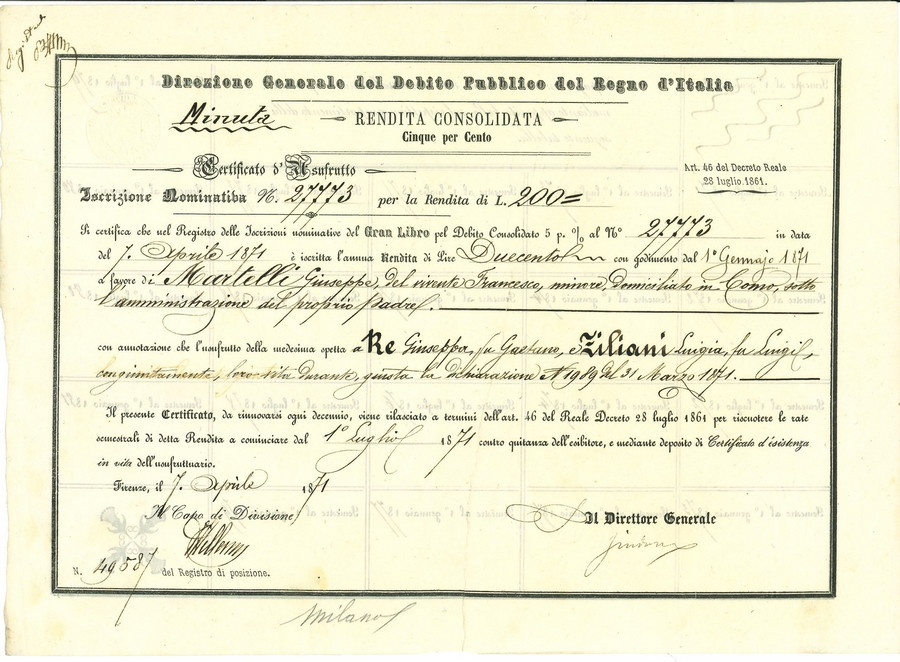 Direzione Generale del Debito Pubblico del Regno d'Italia
Minuta
RENDITA CONSOLIDATA
Cinque per Cento
Certificato d'Usufrutto
Art. 46 del Decreto Reale
28 luglio 1861.
Iscrizione Nominativa N. 27773 per la Rendita di L. 200=
Si certifica che nel Registro delle Iscrizioni nominative del Gran Libro pel Debito Consolidato 5 p. % al N° 27773 in data
del 7. Aprile 1871 è iscritta l'annua Rendita di Lire Duecento con godimento dal 1° Gennajo 1871
a favore di Martelli Giuseppe, del vivente Francesco, minore, domiciliato in Como, sotto
l'amministrazione del proprio padre.
con annotazione che l'usufrutto della medesima spetta a Re Giuseppa, fu Gaetano, e Ziliani Luigia, fu Luigi,
congiuntamente, loro vita durante, giusta la dichiarazione N 1989 del 31 Marzo 1871.
Il presente Certificato, da rinnovarsi ogni decennio, viene rilasciato a termini dell'art. 46 del Reale Decreto 28 luglio 1861 per riscuotere le rate
semestrali di detta Rendita a cominciare dal 1° Luglio 1871 contro quitanza dell'esibitore, e mediante deposito di Certificato d'esistenza
in vita dell'usufruttuario.
Firenze, il 7. Aprile 1871
Il Capo di Divisione
Il Direttore Generale
N. 49587 del Registro di posizione.
Milano